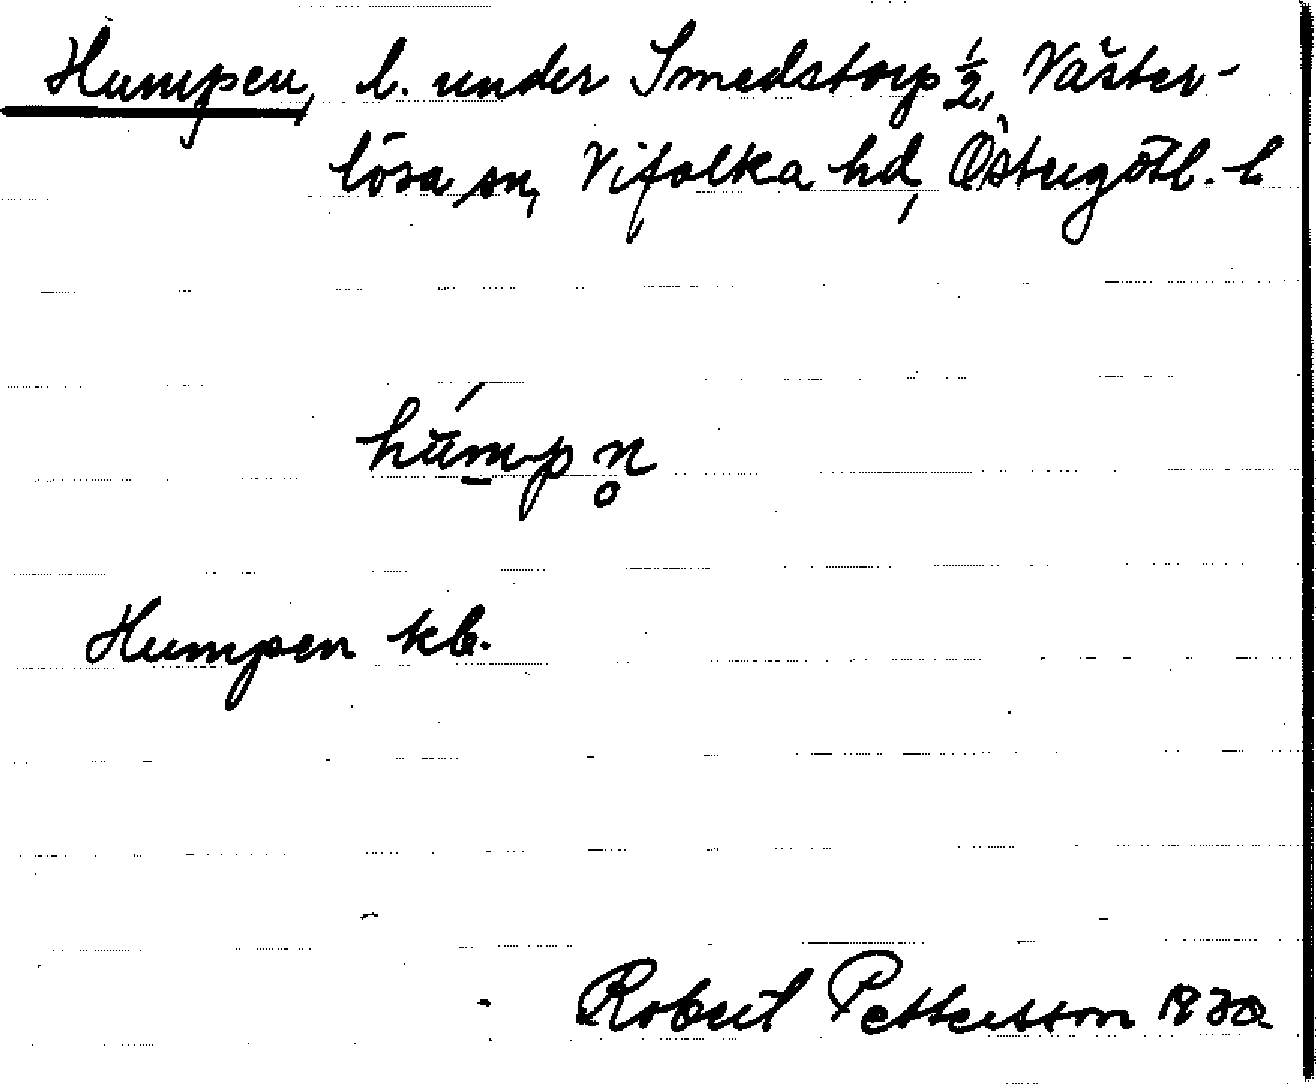 Humpen, l. under Smedstorp ½, Väster-
lösa sn, Vifolka hd, Östergötl. l
hŭ́mpn̥
Humpen kb.
Robert Pettersson 1930